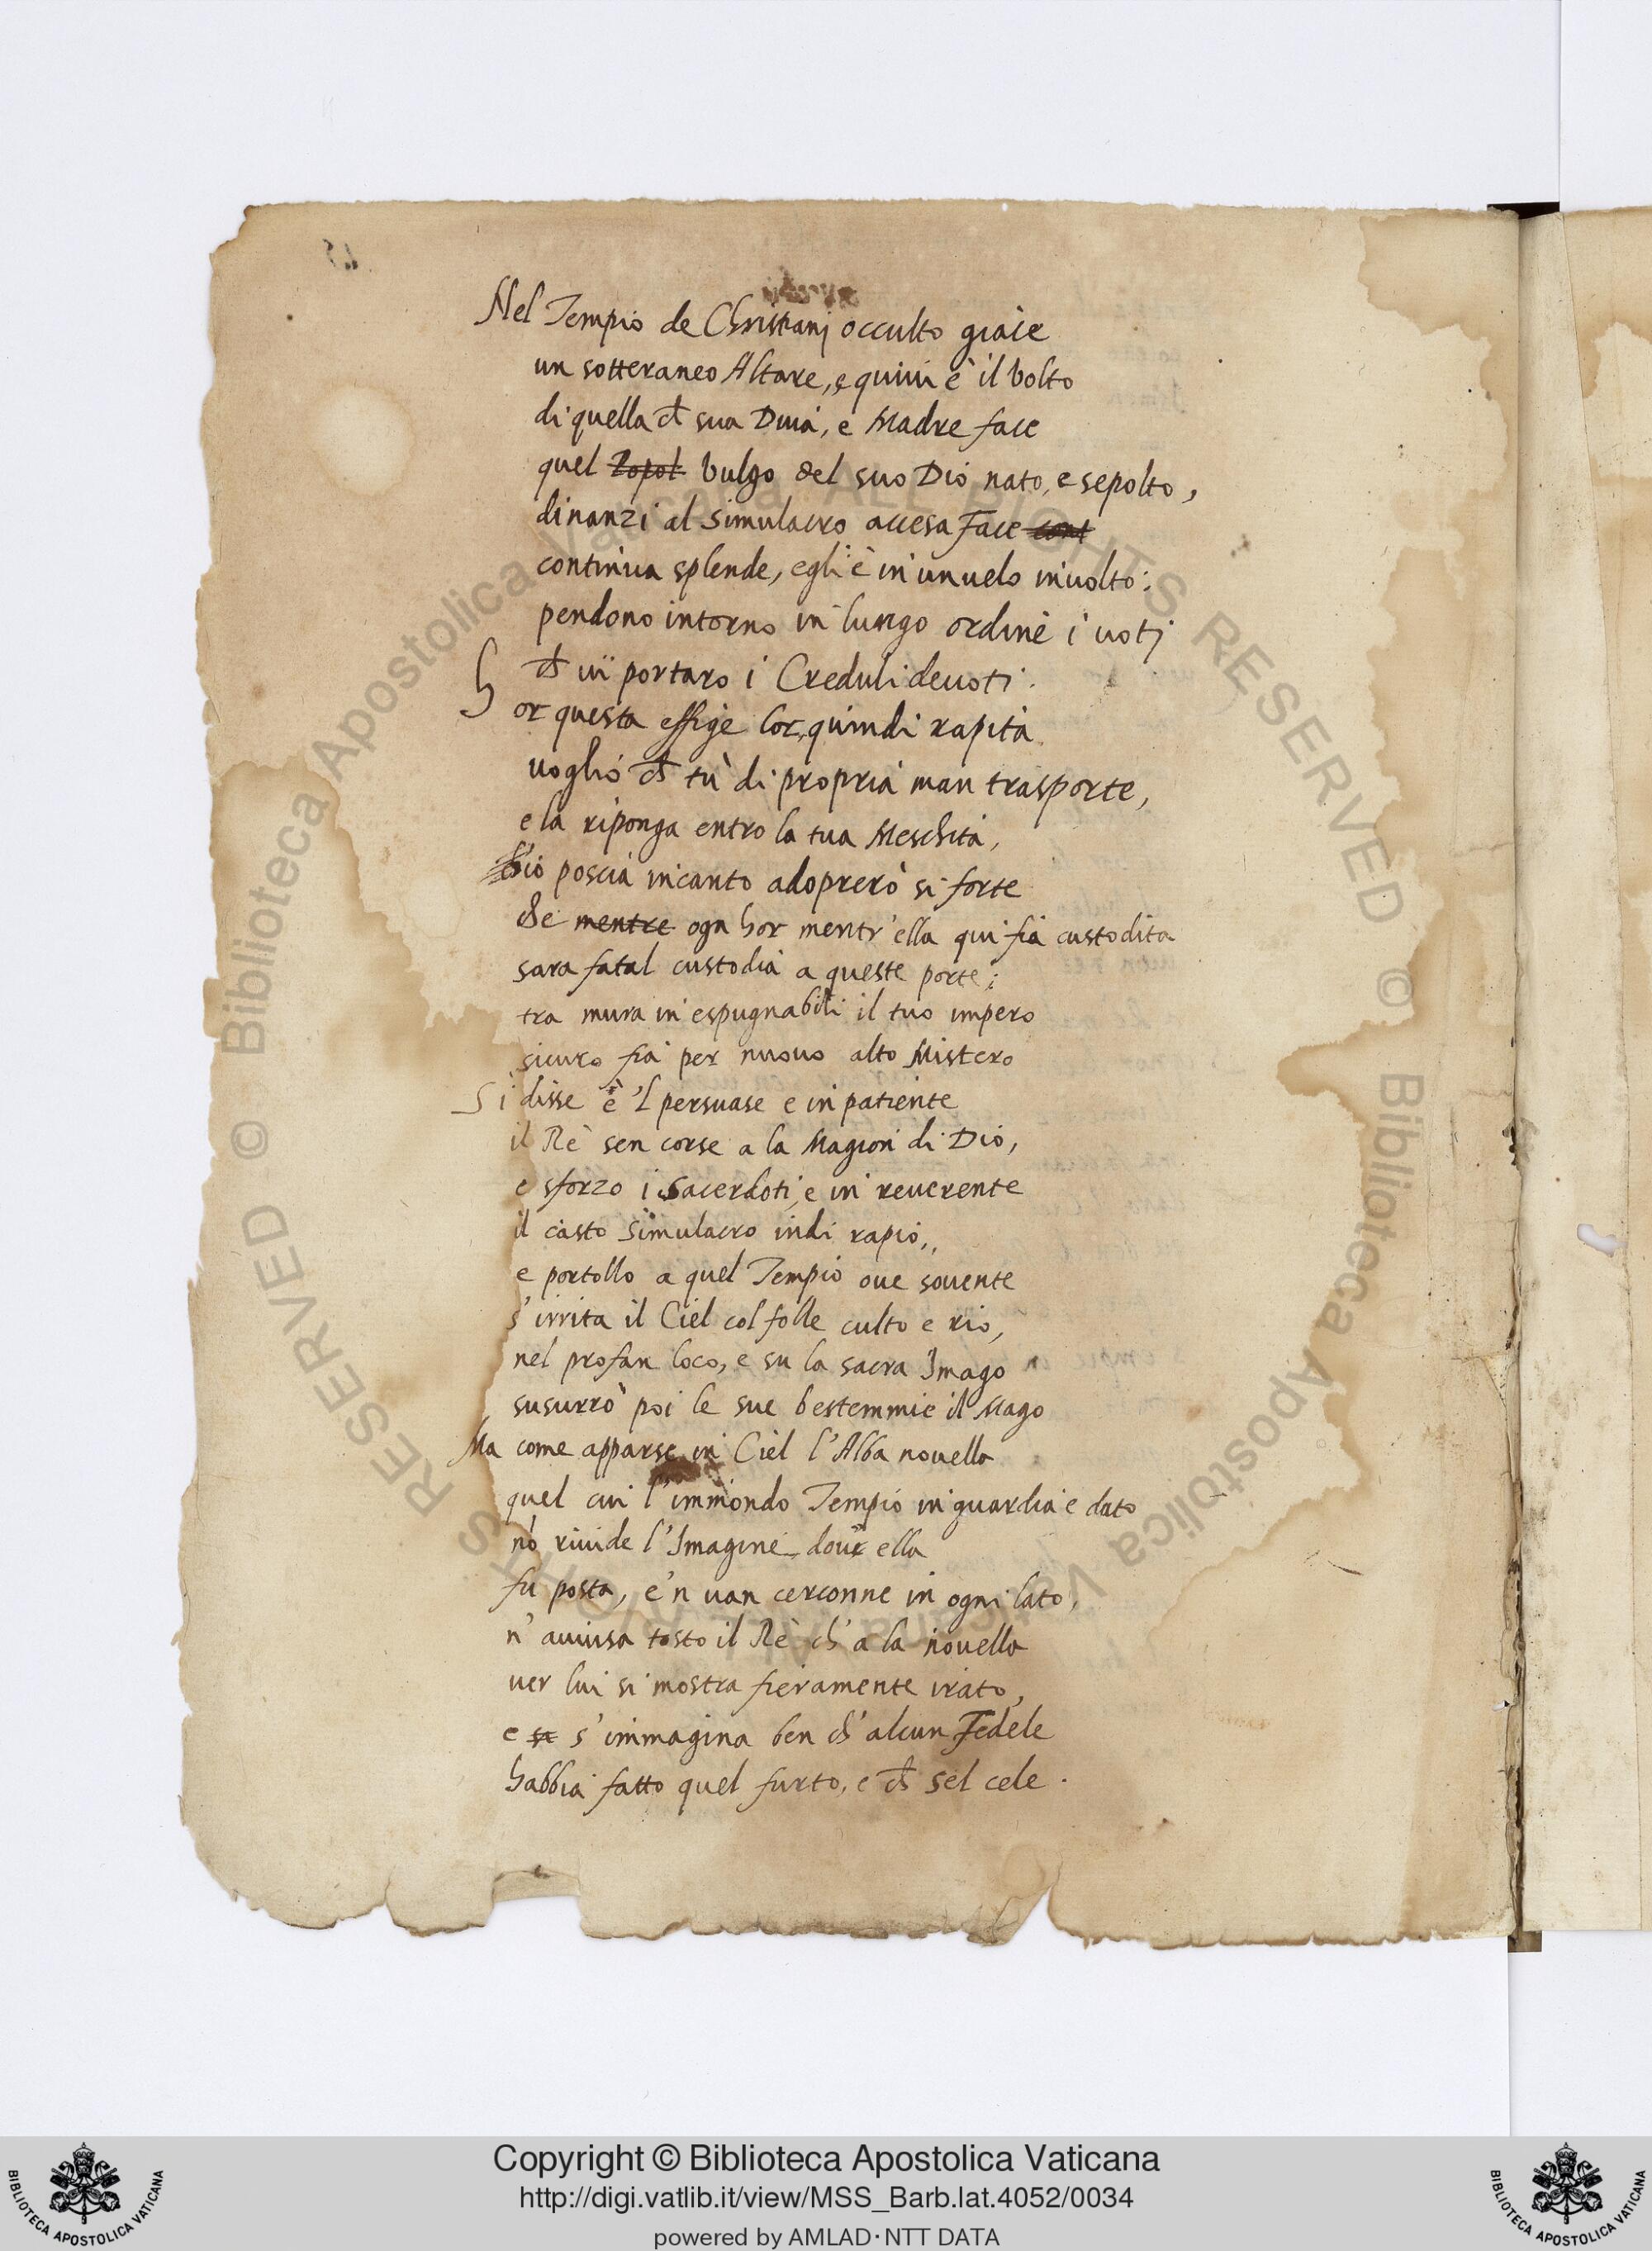 Nel Tempio de Christianj occulto giace
un sotteraneo Altare, e quiui è il Volto
di quella ch̄ sua Diua, e Madre face
quel Popol Vulgo del suo Dio nato, e sepolto,
dinanzi al simulacro accesa Face cont
continua splende, egli è in un uelo inuolto;
pendono intorno in lungo ordine i uotj
ch̄ ui portaro i Creduli deuoti.
Hor questa effige lor, quindi rapita
uoglio ch̄ tù di propria man trasporte,
e la riponga entro la tua Meschita,
ch'io poscia incanto adoprerò si forte
che mentre ogn hor mentr'ella qui fia custodita
sara fatal custodia a queste porte;
tra mura in espugnabili il tuo impero
sicuro fia per nuouo alto Mistero
Si disse è 'l persuase e in patiente
il Rè sen corse a la Magion di Dio,
e sforzo i Sacerdoti, e in reuerente
il casto Simulacro indi rapio,
e portollo a quel Tempio oue souente
s'irrita il Ciel col folle culto e rio,
nel profan loco, e su la sacra Imago
susurrò poi le sue bestemmie il Mago
Ma come apparse in Ciel l'Alba nouella
quel cui l'immondo Tempio in guardia è dato
nō riuide l'Imagine dou' ella
fu posta, e'n uan cerconne in ogni lato,
n'auuisa tosto il Rè ch'a la nouella
uer lui si mostra fieramente irato,
e si s'immagina ben ch'alcun Fedele
habbia fatto quel furto, e ch̄ sel cele.
Copyright © Biblioteca Apostolica Vaticana
http://digi.vatlib.it/view/MSS_Barb.lat.4052/0034
powered by AMLAD·NTT DATA
BIBLIOTECA APOSTOLICA VATICANA
BIBLIOTECA APOSTOLICA VATICANA
© Biblioteca Apostolica Vaticana ALL RIGHTS RESERVED © Biblioteca Apostolica Vaticana ALL RIGHTS RESERVED